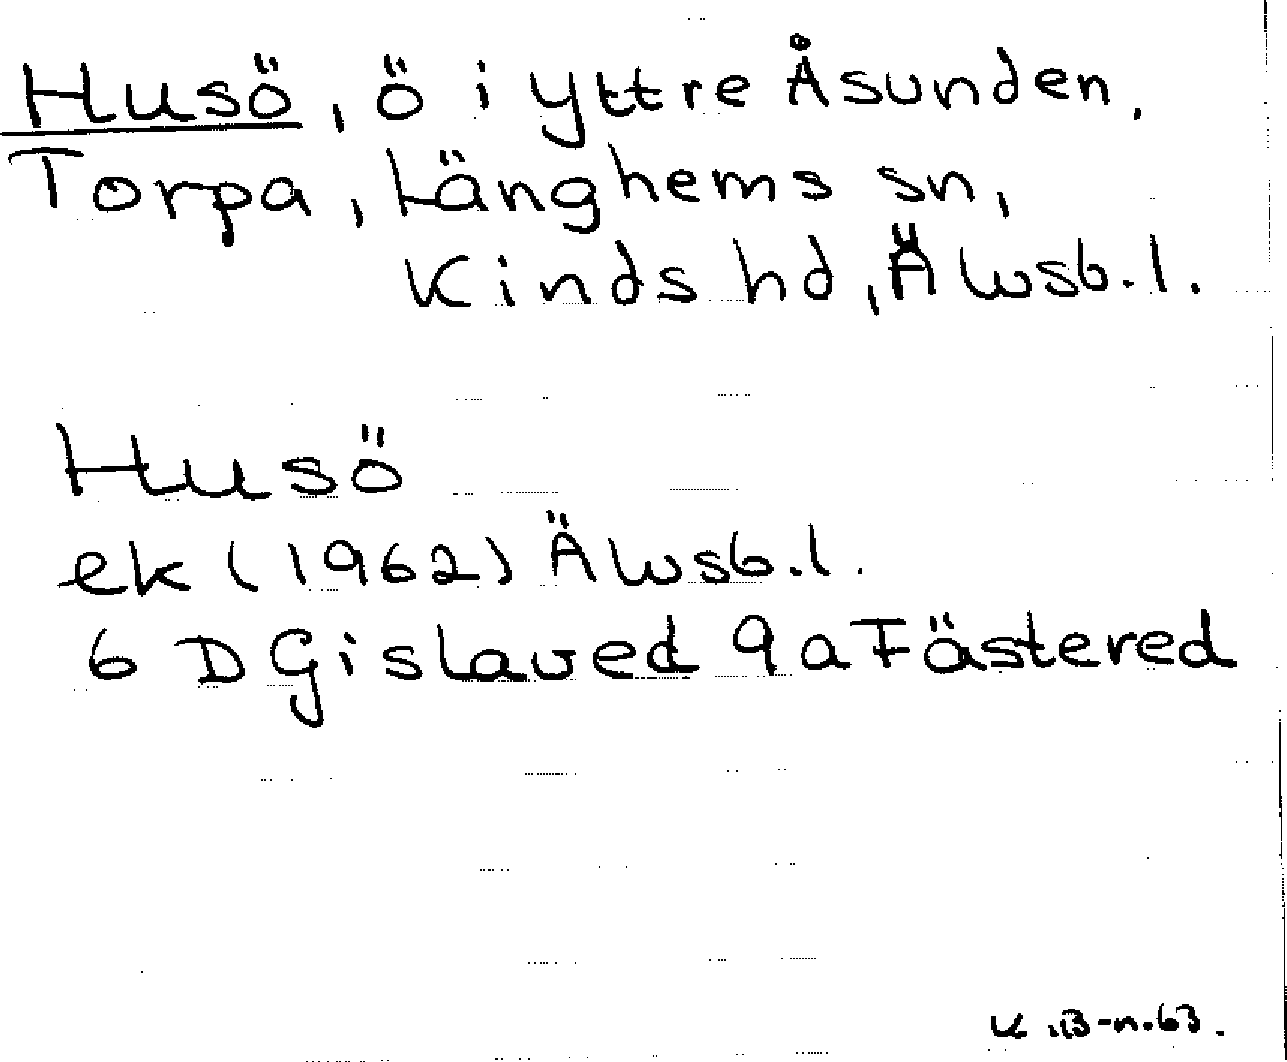 Husö, ö i Yttre Åsunden,
Torpa, Länghems sn,
Kinds hd, Älvsb. l.
Husö
ek (1962) Älvsb. l.
6 D Gislaved 9a Fästered
K. B-n. 63.